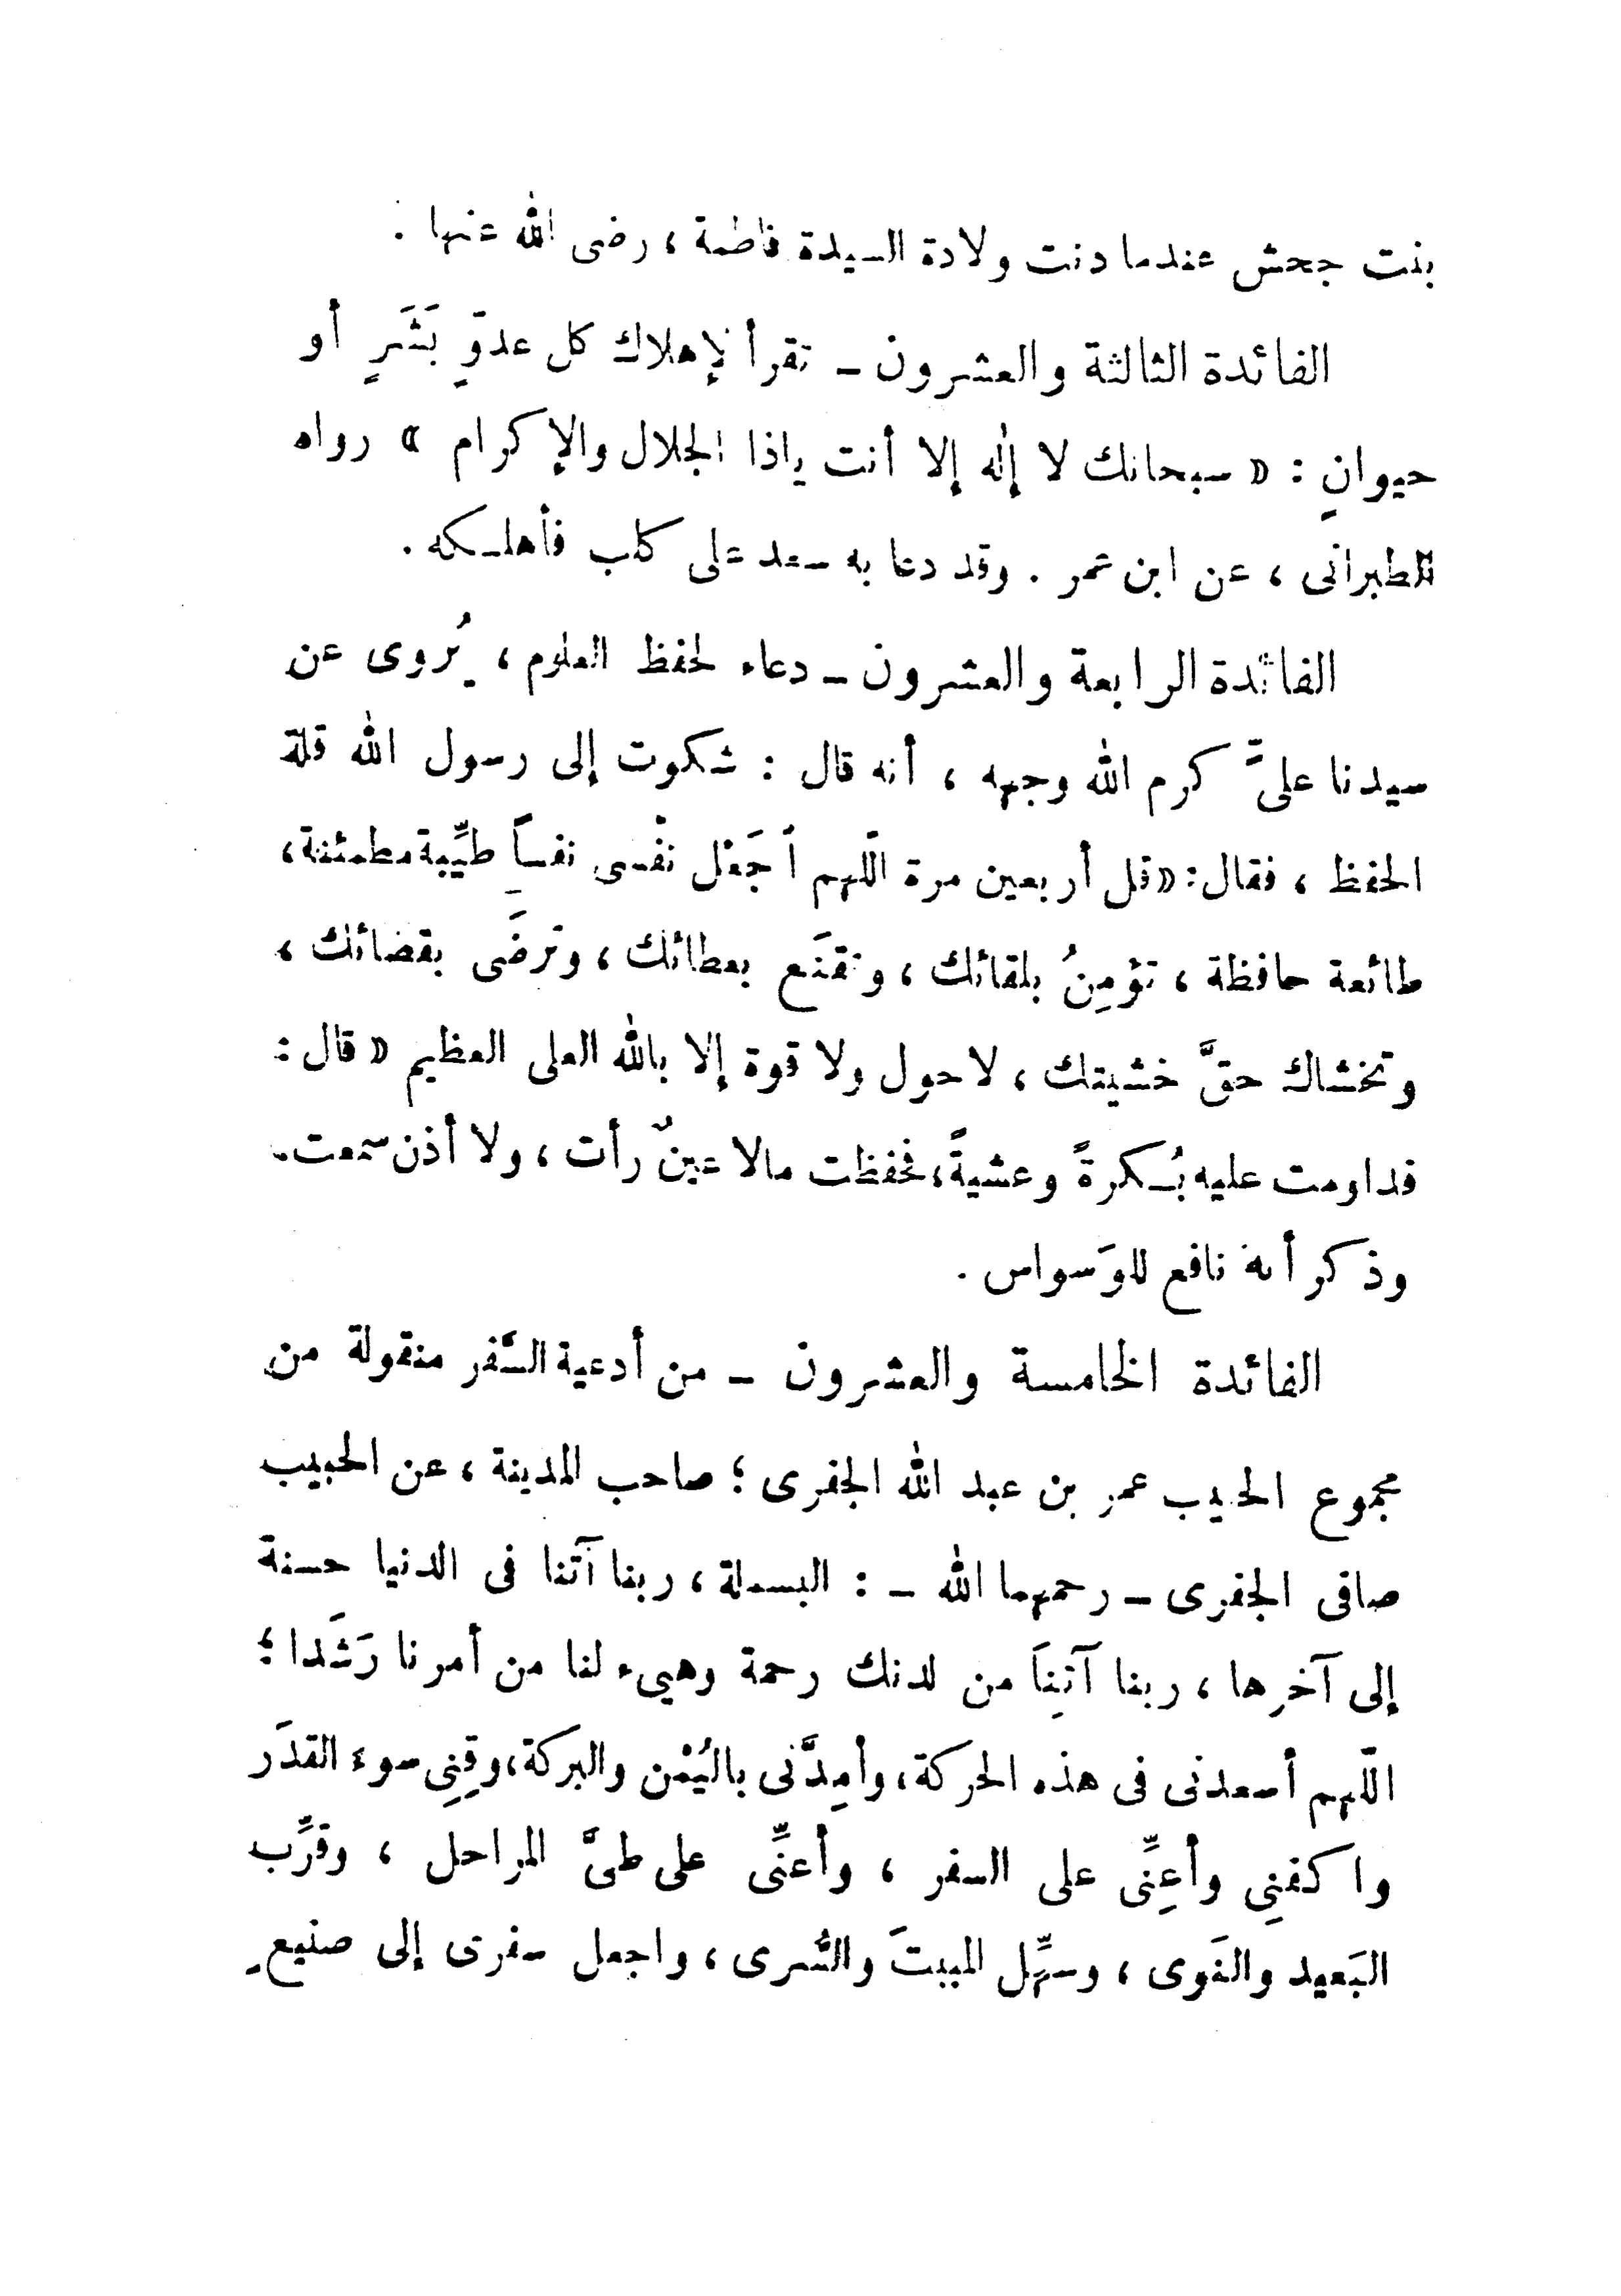 بنت جحش عندما دنت ولادة السيدة فاطمة ، رضى الله عنها .
الفائدة الثالثة والعشرون ــ تقرأ لإهلاك كل عدوّ بَشَرٍ أو
حيوانٍ : « سبحانك لا إله إلا أنت ياذا الجلال والإكرام » رواه
الطبرانى ، عن ابن عمر . وقد دعا به سعد على كلب فأهلكه .
الفائدة الرابعة والعشرون ــ دعاء لحفظ العلوم ، يُروى عن
سيدنا علىّ كرم الله وجهه ، أنه قال : شكوت إلى رسول الله قلة
الحفظ ، فقال : « قل أربعين مرة اللّهم اَجَعْل نفْسى نفساً طيِّبة مطمئنة ،
طائعة حافظة ، تؤمِنُ بلقائك ، وتقنَع بعطائك ، وتَرضَى بقضائك ،
وتخشاك حقَّ خشيتك ، لا حول ولا قوة إلا بالله العلى العظيم « قال :
فداومت عليه بُكرةً وعشيةً ، فحفظت مالا عينٌ رأت ، ولا أذن سمعت .
وذكر أنه نافع للوَسواس .
الفائدة الخامسة والعشرون ــ من أدعية السَّفر منقولة من
مجموع الحبيب عمر بن عبد الله الجفرى ؛ صاحب المدينة ، عن الحبيب
صافى الجفرى ــ رحمهما الله ــ : البسملة ، ربنا آتنا فى الدنيا حسنة
إلى آخرها ، ربنا آتِنَا من لدنك رحمة وهيىء لنا من أمرنا رَشَدا ؛
اللّهم أسعدنى فى هذه الحركة ، وأمِدَّنى باليُمْن والبركة ، وقِنِى سوء القدَر
واكفنِى وأعِنِّى على السفر ، وأعنِّى على طىَّ المراحل ، وقرِّب
البَعيد والنَوى ، وسهِّل المبيتَ والسُّرى ، واجعل سفرى إلى صنيع